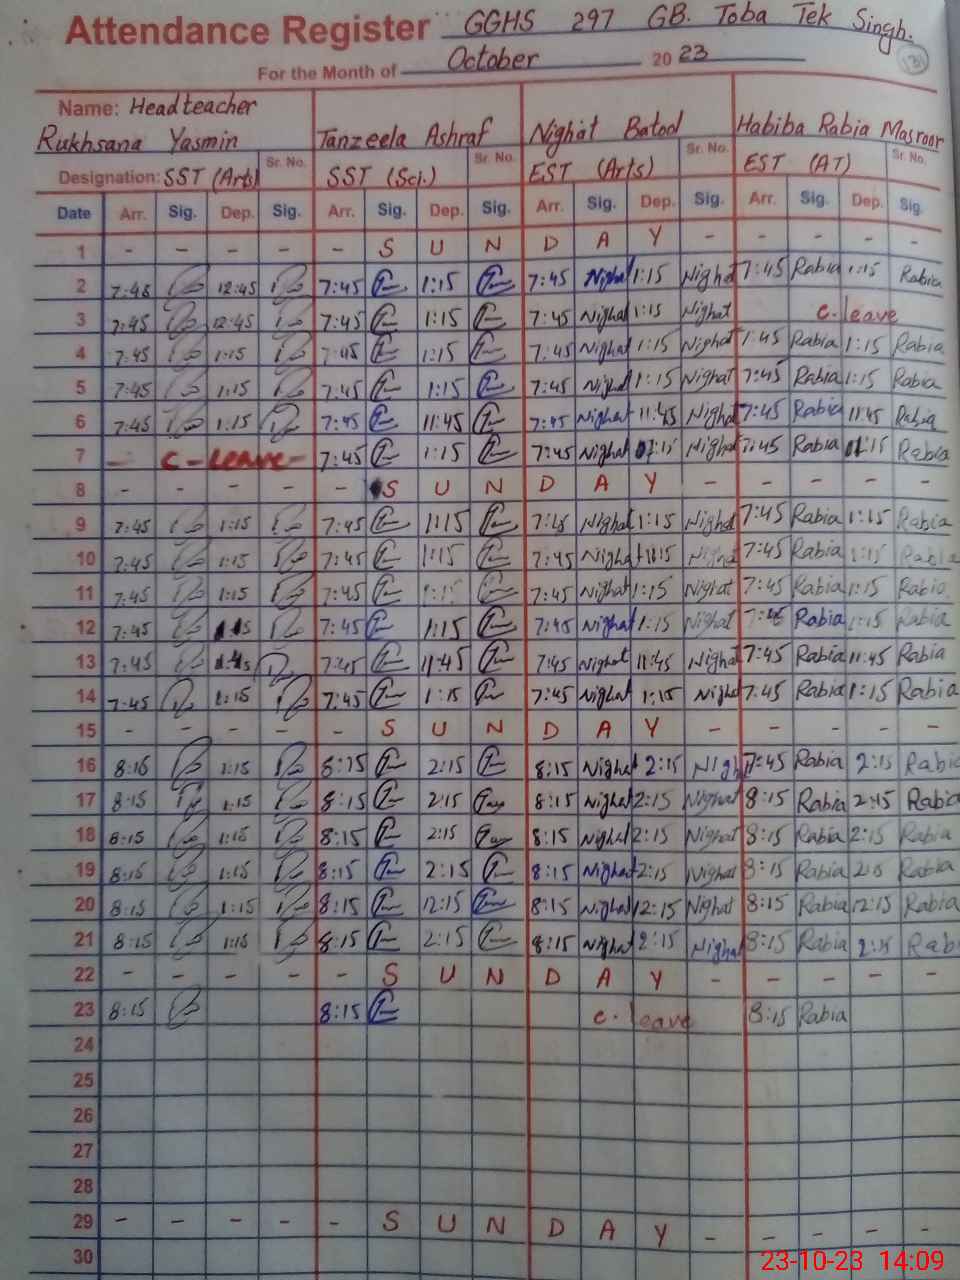 Attendance Register GGHS 297 GB. Toba Tek Singh.
For the Month of October 2023
Name: Headteacher
Rukhsana Yasmin Tanzeela Ashraf Nighat Batool Habiba Rabia Masroor
Sr. No. Sr. No. Sr. No. Sr. No.
Designation: SST (Arts) SST (Sci.) EST (Arts) EST (AT)
Date Arr. Sig. Dep. Sig. Arr. Sig. Dep. Sig. Arr. Sig. Dep. Sig. Arr. Sig. Dep. Sig.
1 - - - - - S U N D A Y - - - - -
2 7:45 12:45 7:45 1:15 7:45 Nighat 1:15 Nighat 7:45 Rabia 1:15 Rabia
3 7:45 12:45 7:45 1:15 7:45 Nighat 1:15 Nighat c. leave
4 7:45 1:15 7:45 1:15 7:45 Nighat 1:15 Nighat 7:45 Rabia 1:15 Rabia
5 7:45 1:15 7:45 1:15 7:45 Nighat 1:15 Nighat 7:45 Rabia 1:15 Rabia
6 7:45 1:15 7:45 11:45 7:45 Nighat 11:45 Nighat 7:45 Rabia 11:45 Rabia
7 - C - Leave - 7:45 1:15 7:45 Nighat 1:15 Nighat 7:45 Rabia 1:15 Rabia
8 - - - - - S U N D A Y - - - - -
9 7:45 1:15 7:45 1:15 7:45 Nighat 1:15 Nighat 7:45 Rabia 1:15 Rabia
10 7:45 1:15 7:45 1:15 7:45 Nighat 1:15 Nighat 7:45 Rabia 1:15 Rabia
11 7:45 1:15 7:45 1:15 7:45 Nighat 1:15 Nighat 7:45 Rabia 1:15 Rabia
12 7:45 7:45 1:15 7:45 Nighat 1:15 Nighat 7:45 Rabia 1:15 Rabia
13 7:45 7:45 11:45 7:45 Nighat 11:45 Nighat 7:45 Rabia 11:45 Rabia
14 7:45 1:15 7:45 1:15 7:45 Nighat 1:15 Nighat 7:45 Rabia 1:15 Rabia
15 - - - - - S U N D A Y - - - - -
16 8:16 1:15 8:15 2:15 8:15 Nighat 2:15 Nigh 7:45 Rabia 2:15 Rabia
17 8:15 1:15 8:15 2:15 8:15 Nighat 2:15 Nighat 8:15 Rabia 2:15 Rabia
18 8:15 1:15 8:15 2:15 8:15 Nighat 2:15 Nighat 8:15 Rabia 2:15 Rabia
19 8:15 1:15 8:15 2:15 8:15 Nighat 2:15 Nighat 8:15 Rabia 2:15 Rabia
20 8:15 1:15 8:15 12:15 8:15 Nighat 12:15 Nighat 8:15 Rabia 12:15 Rabia
21 8:15 1:15 8:15 2:15 8:15 Nighat 2:15 Nighat 8:15 Rabia 2:15 Rab
22 - - - - - S U N D A Y - - - - -
23 8:15 8:15 c. leave 8:15 Rabia
24
25
26
27
28
29 - - - - - S U N D A Y - - - - -
30
23-10-23 14:09